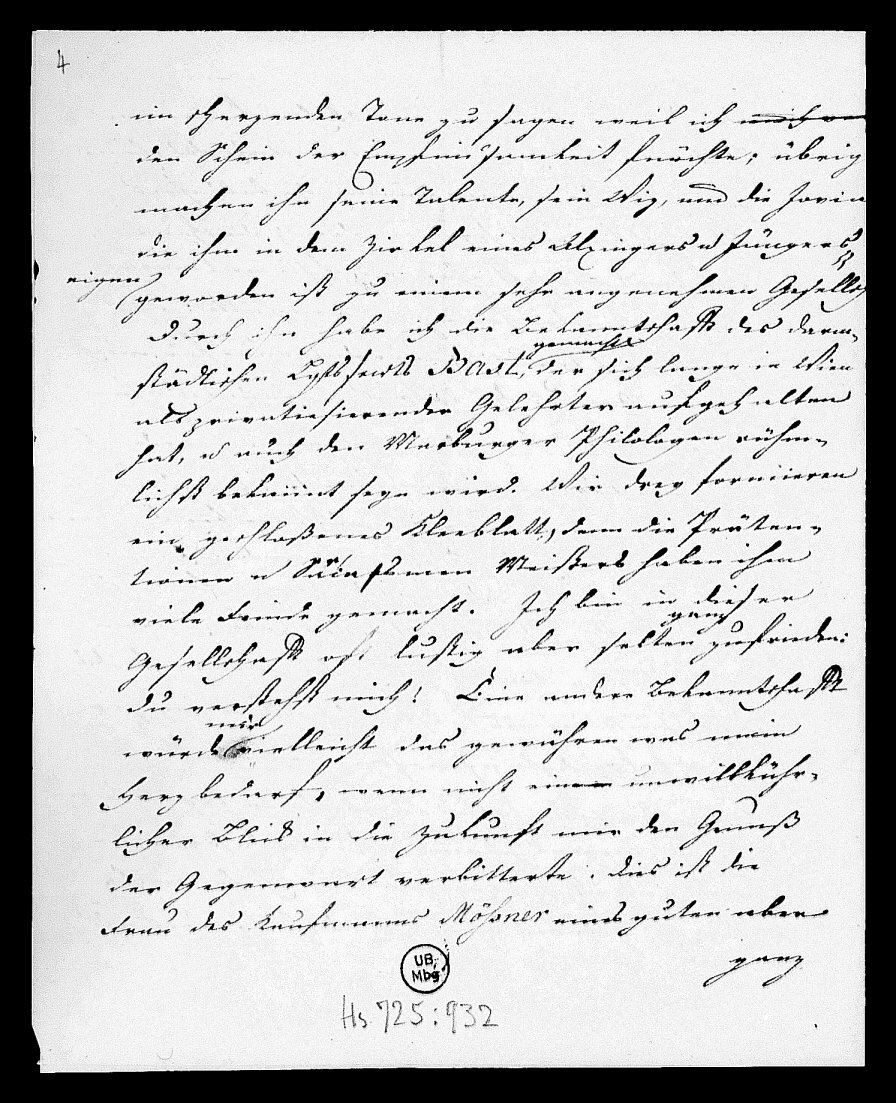 4
im scherzenden Tone zu sagen weil ich mich vor
den Schein der Empfindsamkeit fürchte; übrig
machen ihn seine Talente, sein Wiz, und die Jovia
die ihm in dem Zirkel eines Alxingers u Jüngers
eigen geworden ist zu einem sehr angenehmen Gesellsch
Durch ihn habe ich die Bekanntschaft des darm-
gemacht
städtischen Bast, der sich lange in Wien
als privatisierender Gelehrter aufgehalten
hat, u auch den Marburger Philologen rühm-
lichst bekannt seyn wird. Wir drey formieren
ein geschloßenes Kleeblatt, denn die Präten-
tionen u Sarcasmen Meißners haben ihm
viele Feinde gemacht. Ich bin in dieser
ganz
Gesellschaft oft lustig aber selten zufrieden:
du verstehst mich! Eine andere Bekanntschaft
mir
würde vielleicht das gewähren was mein
Herz bedarf, wenn nicht ein unwillkühr-
licher Blick in die Zukunft mir den Genuß
der Gegenwart verbitterte. dies ist die
Frau des Kaufmanns Mößner eines guten aber
ganz
UB
Mbg
Hs 725:932